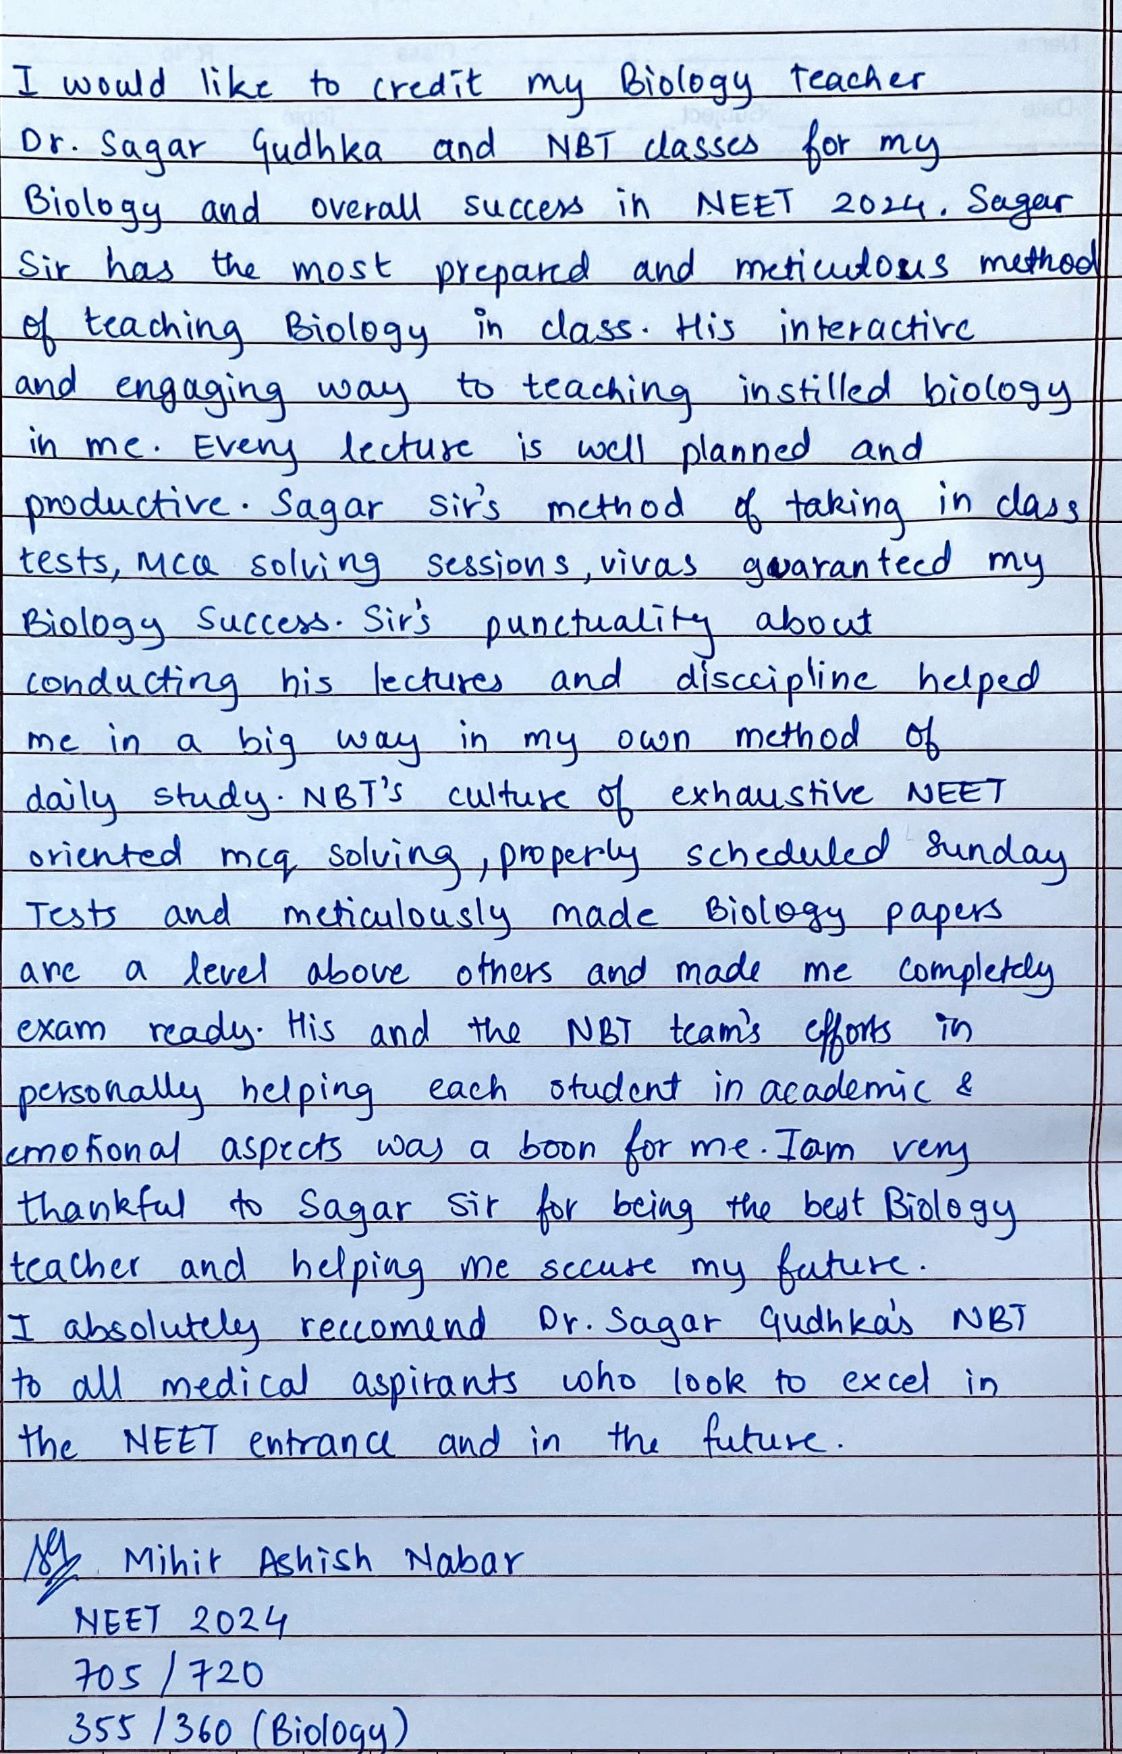 I would like to credit my Biology teacher
Dr. Sagar Gudhka and NBT classes for my
Biology and overall success in NEET 2024. Sagar
Sir has the most prepared and meticulous method
of teaching Biology in class. His interactive
and engaging way to teaching instilled biology
in me. Every lecture is well planned and
productive. Sagar Sir's method of taking in class
tests, MCQ solving sessions, vivas guaranteed my
Biology Success. Sir's punctuality about
conducting his lectures and disccipline helped
me in a big way in my own method of
daily study. NBT's culture of exhaustive NEET
oriented mcq solving, properly scheduled Sunday
Tests and meticulously made Biology papers
are a level above others and made me completely
exam ready. His and the NBT team's efforts in
personally helping each student in academic &
emotional aspects was a boon for me. I am very
thankful to Sagar Sir for being the best Biology
teacher and helping me secure my future.
I absolutely reccomend Dr. Sagar Gudhka's NBT
to all medical aspirants who look to excel in
the NEET entrance and in the future.
Mihir Ashish Nabar
NEET 2024
705/720
355/360 (Biology)